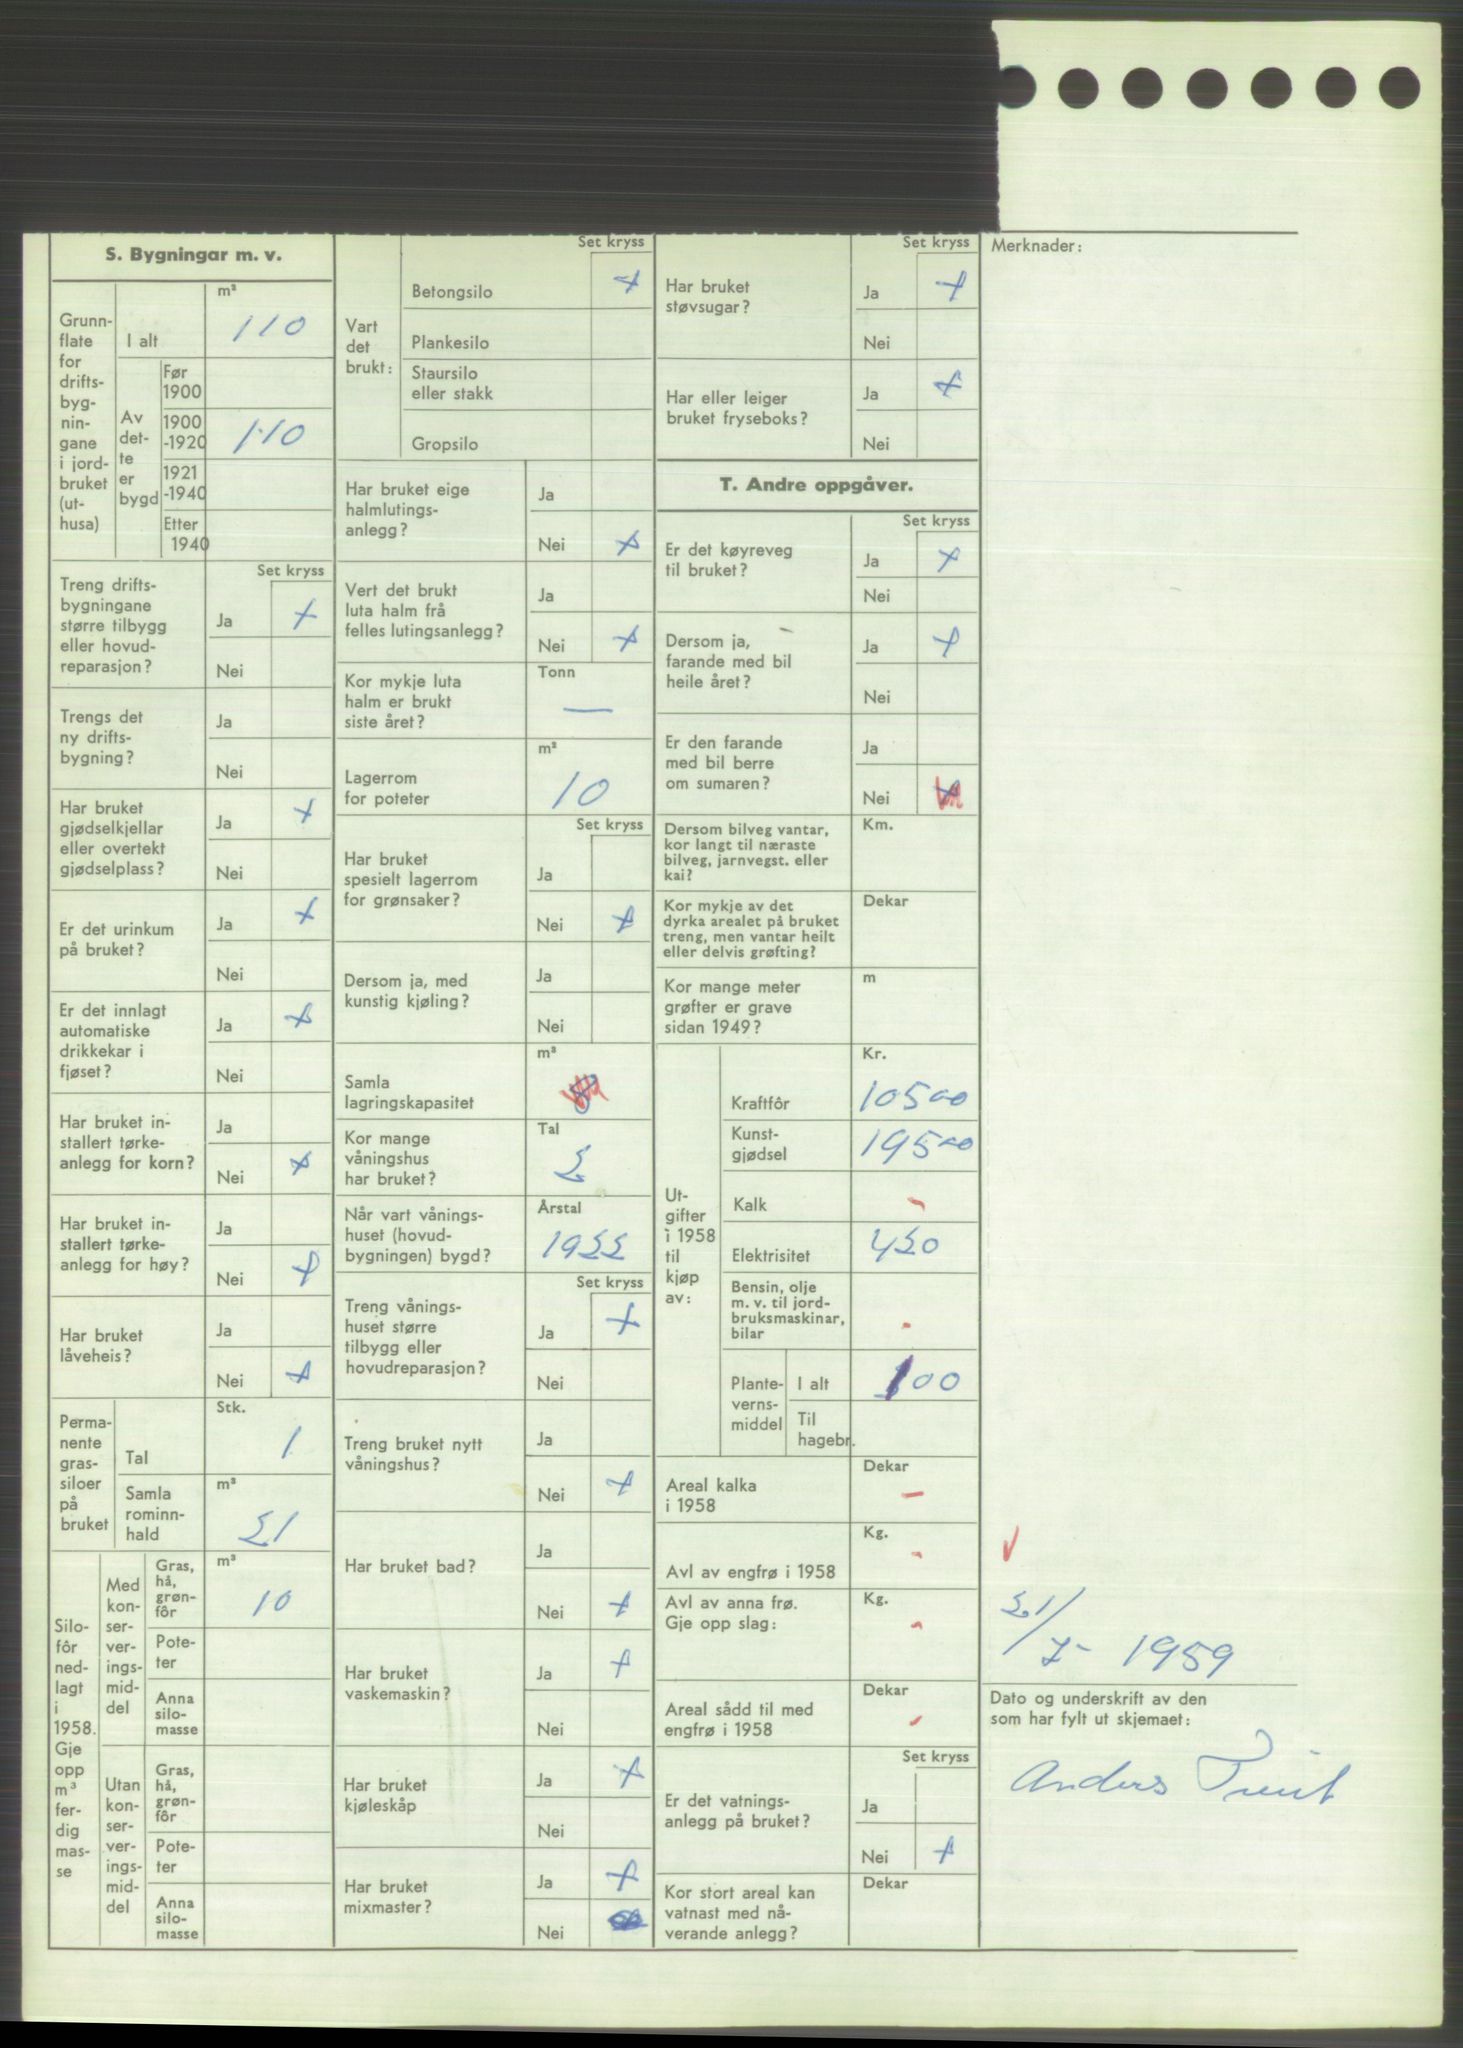 S. Bygningar m. v.
Grunn-
flate
for
drifts-
byg-
nin-
gane
i jord-
bruket
(ut-
husa)
I alt
m²
110
Av
det-
te
er
bygd
Før
1900
1900
-1920
110
1921
-1940
Etter
1940
Set kryss
Treng drifts-
bygningane
større tilbygg
eller hovud-
reparasjon?
Ja +
Nei
Trengs det
ny drifts-
bygning?
Ja
Nei
Har bruket
gjødselkjellar
eller overtekt
gjødselplass?
Ja +
Nei
Er det urinkum
på bruket?
Ja +
Nei
Er det innlagt
automatiske
drikkekar i
fjøset?
Ja +
Nei
Har bruket in-
stallert tørke-
anlegg for korn?
Ja
Nei +
Har bruket in-
stallert tørke-
anlegg for høy?
Ja
Nei +
Har bruket
låveheis?
Ja
Nei +
Perma-
nente
gras-
siloer
på
bruket
Tal
Stk.
1
Samla
rominn-
hald
m³
21
Silo-
fôr
ned-
lagt
i
1958.
Gje
opp
m³
fer-
dig
mas-
se
Med
kon-
ser-
ver-
ings-
mid-
del
Gras,
hå,
grøn-
fôr
m³
10
Pote-
ter
Anna
silo-
masse
Utan
kon-
ser-
ver-
ings-
mid-
del
Gras,
hå,
grøn-
fôr
Pote-
ter
Anna
silo-
masse
Set kryss
Vart
det
brukt:
Betongsilo +
Plankesilo
Staursilo
eller stakk
Gropsilo
Har bruket eige
halmlutings-
anlegg?
Ja
Nei +
Vert det brukt
luta halm frå
felles lutingsanlegg?
Ja
Nei +
Kor mykje luta
halm er brukt
siste året?
Tonn
—
Lagerrom
for poteter
m³
10
Set kryss
Har bruket
spesielt lagerrom
for grønsaker?
Ja
Nei +
Dersom ja, med
kunstig kjøling?
Ja
Nei
Samla
lagringskapasitet
m³
Kor mange
våningshus
har bruket?
Tal
2
Når vart vånings-
huset (hovud-
bygningen) bygd?
Årstal
1922
Set kryss
Treng vånings-
huset større
tilbygg eller
hovudreparasjon?
Ja +
Nei
Treng bruket nytt
våningshus?
Ja
Nei +
Har bruket bad?
Ja
Nei +
Har bruket
vaskemaskin?
Ja +
Nei
Har bruket
kjøleskåp
Ja +
Nei
Har bruket
mixmaster?
Ja +
Nei
Set kryss
Har bruket
støvsugar?
Ja +
Nei
Har eller leiger
bruket fryseboks?
Ja +
Nei
T. Andre oppgåver.
Set kryss
Er det køyreveg
til bruket?
Ja +
Nei
Dersom ja,
farande med bil
heile året?
Ja +
Nei
Er den farande
med bil berre
om sumaren?
Ja
Nei
Dersom bilveg vantar,
kor langt til næraste
bilveg, jarnvegst. eller
kai?
Km.
Kor mykje av det
dyrka arealet på bruket
treng, men vantar heilt
eller delvis grøfting?
Dekar
Kor mange meter
grøfter er grave
sidan 1949?
m
Ut-
gifter
i 1958
til
kjøp
av:
Kr.
Kraftfôr
10500
Kunst-
gjødsel
19500
Kalk
-
Elektrisitet
420
Bensin, olje
m. v. til jord-
bruksmaskinar,
bilar
-
Plante-
verns-
middel
I alt
100
Til
hagebr.
Areal kalka
i 1958
Dekar
-
Avl av engfrø i 1958
Kg.
-
Avl av anna frø.
Gje opp slag:
Kg.
-
Areal sådd til med
engfrø i 1958
Dekar
-
Set kryss
Er det vatnings-
anlegg på bruket?
Ja
Nei +
Kor stort areal kan
vatnast med nå-
verande anlegg?
Dekar
Merknader:
21/7- 1959
Dato og underskrift av den
som har fylt ut skjemaet:
Anders